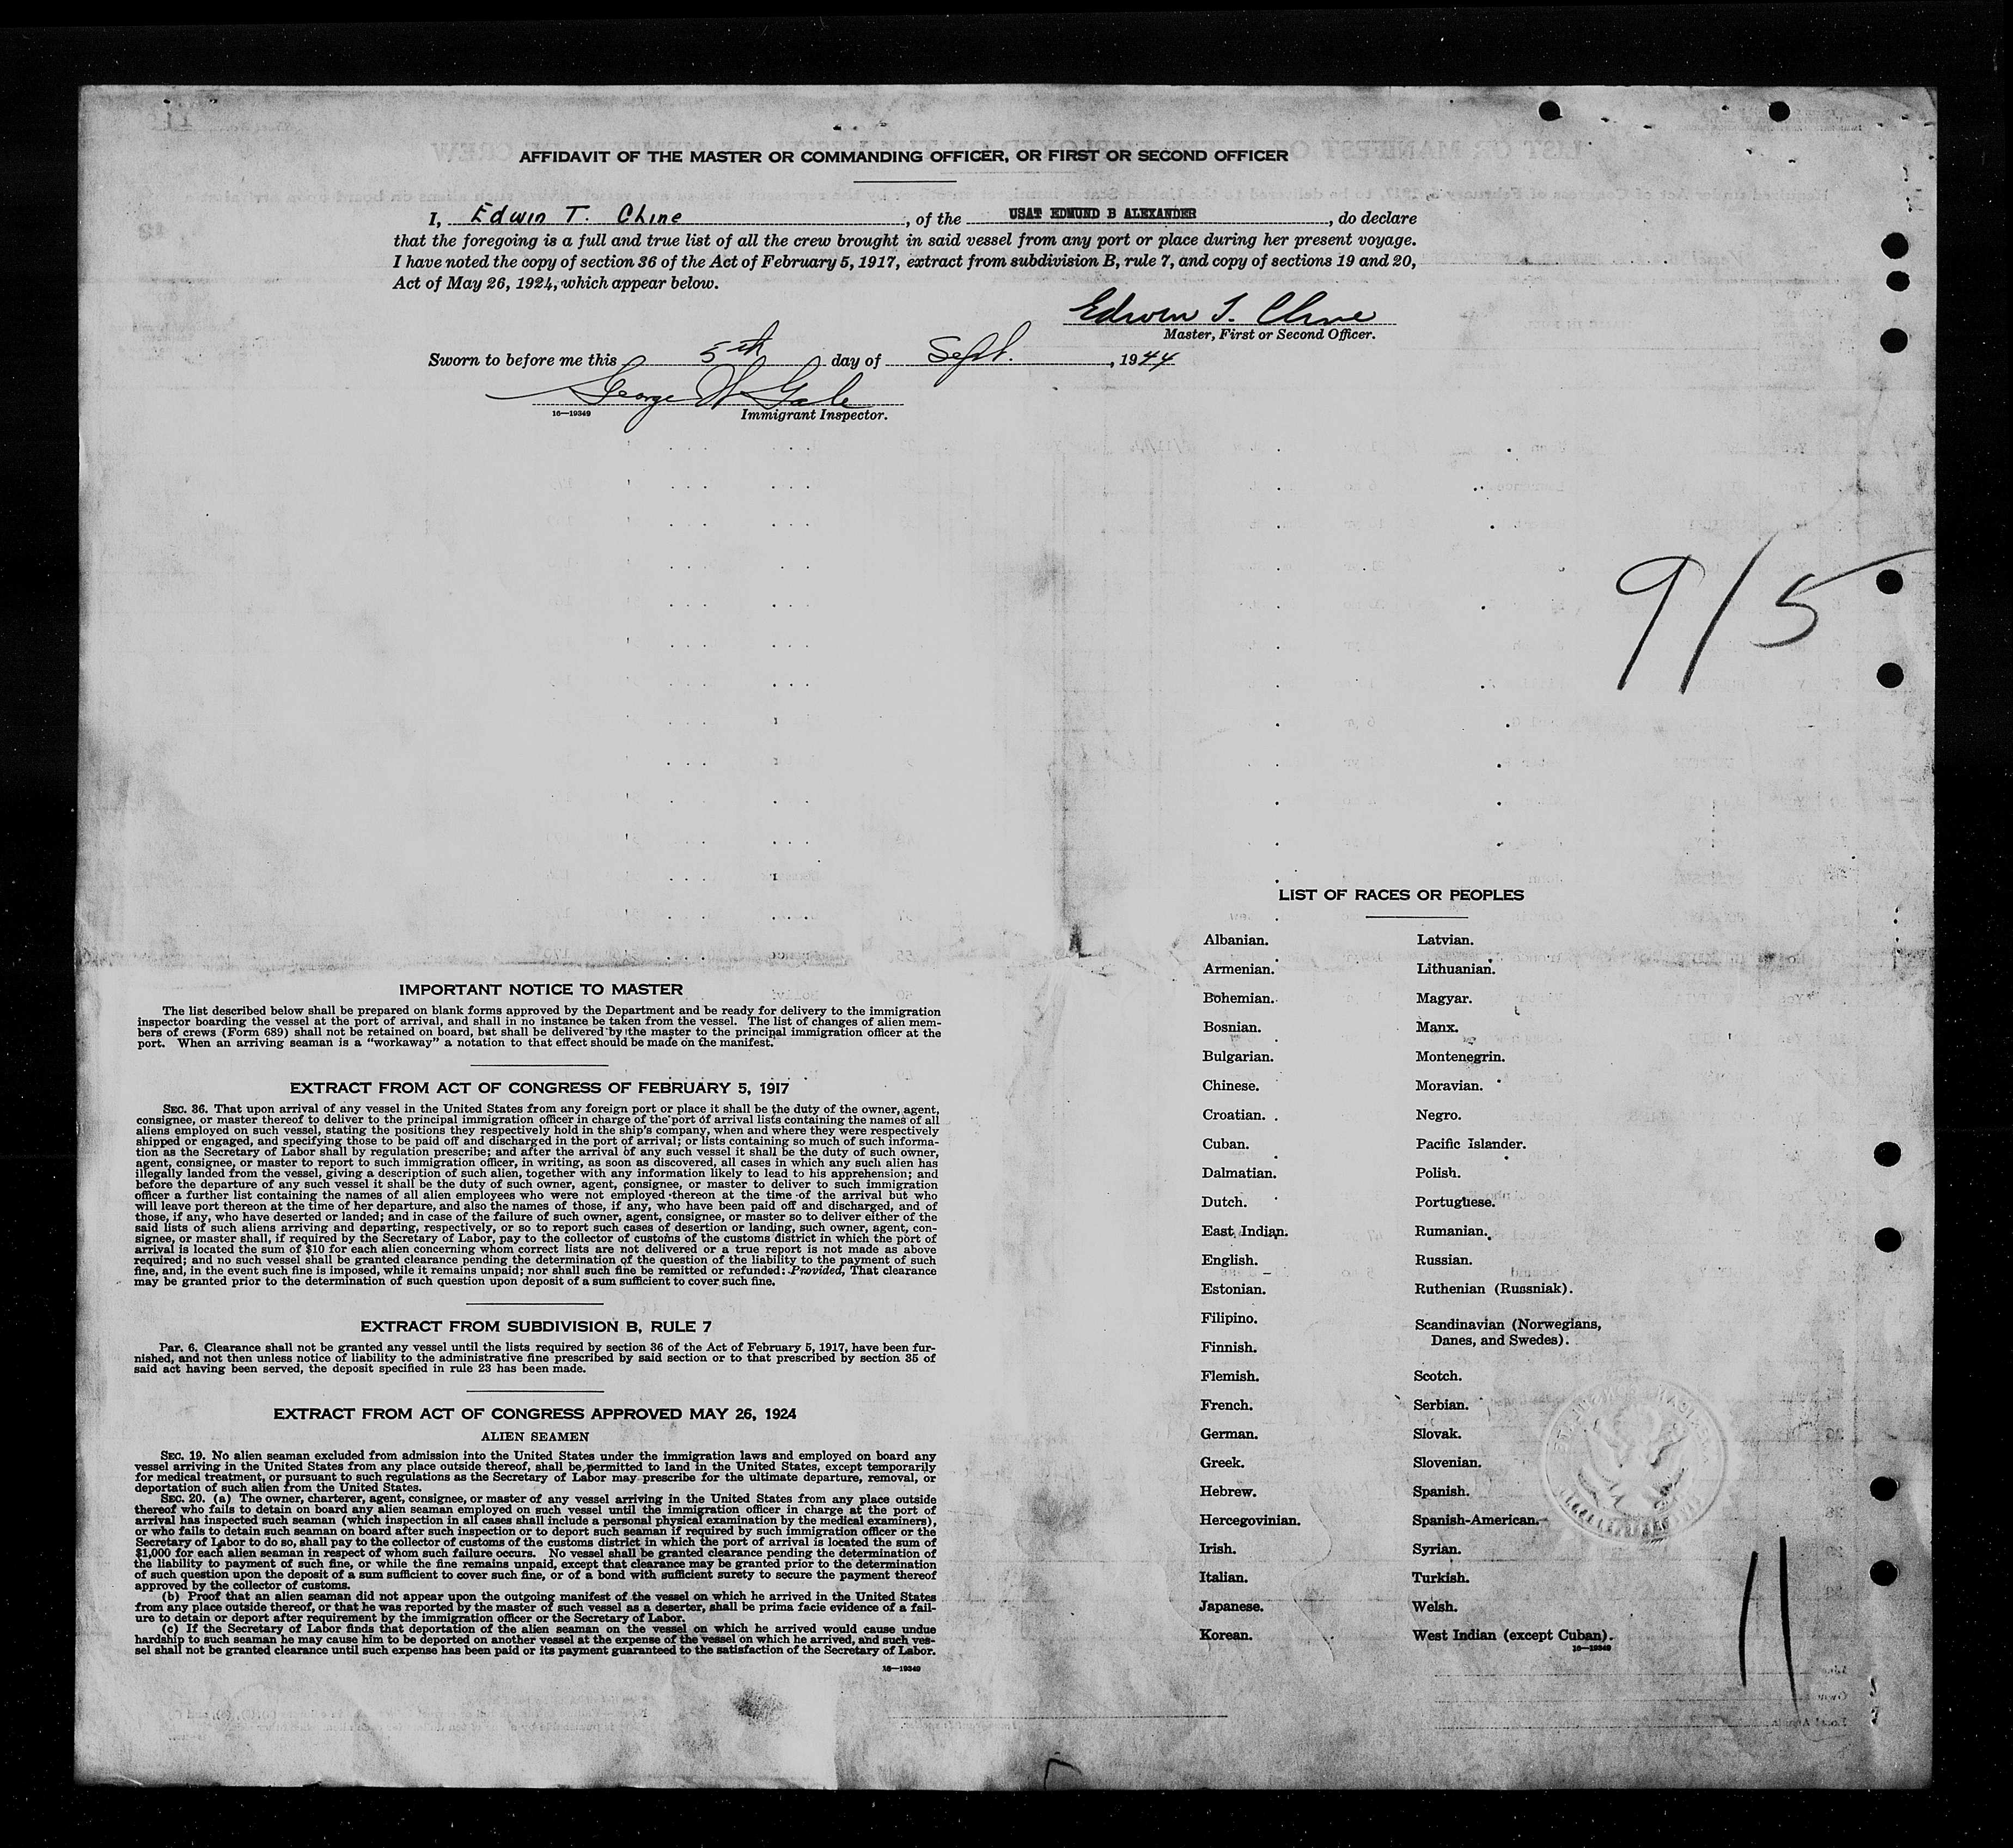 AFFIDAVIT OF THE MASTER OR COMMANDING OFFICER, OR FIRST OR SECOND OFFICER
I, Edwin T. Cline, of the USAT EDMUND B ALEXANDER, do declare
that the foregoing is a full and true list of all the crew brought in said vessel from any port or place during her present voyage.
I have noted the copy of section 36 of the Act of February 5, 1917, extract from subdivision B, rule 7, and copy of sections 19 and 20,
Act of May 26, 1924, which appear below.
Edwin T. Cline
Master, First or Second Officer.
Sworn to before me this 5th day of Sept., 1944
George W Gale
16—19349 Immigrant Inspector.
9/5
IMPORTANT NOTICE TO MASTER
The list described below shall be prepared on blank forms approved by the Department and be ready for delivery to the immigration
inspector boarding the vessel at the port of arrival, and shall in no instance be taken from the vessel. The list of changes of alien mem-
bers of crews (Form 689) shall not be retained on board, but shall be delivered by the master to the principal immigration officer at the
port. When an arriving seaman is a "workaway" a notation to that effect should be made on the manifest.
EXTRACT FROM ACT OF CONGRESS OF FEBRUARY 5, 1917
SEC. 36. That upon arrival of any vessel in the United States from any foreign port or place it shall be the duty of the owner, agent,
consignee, or master thereof to deliver to the principal immigration officer in charge of the port of arrival lists containing the names of all
aliens employed on such vessel, stating the positions they respectively hold in the ship's company, when and where they were respectively
shipped or engaged, and specifying those to be paid off and discharged in the port of arrival; or lists containing so much of such informa-
tion as the Secretary of Labor shall by regulation prescribe; and after the arrival of any such vessel it shall be the duty of such owner,
agent, consignee, or master to report to such immigration officer, in writing, as soon as discovered, all cases in which any such alien has
illegally landed from the vessel, giving a description of such alien, together with any information likely to lead to his apprehension; and
before the departure of any such vessel it shall be the duty of such owner, agent, consignee, or master to deliver to such immigration
officer a further list containing the names of all alien employees who were not employed thereon at the time of the arrival but who
will leave port thereon at the time of her departure, and also the names of those, if any, who have been paid off and discharged, and of
those, if any, who have deserted or landed; and in case of the failure of such owner, agent, consignee, or master so to deliver either of the
said lists of such aliens arriving and departing, respectively, or so to report such cases of desertion or landing, such owner, agent, con-
signee, or master shall, if required by the Secretary of Labor, pay to the collector of customs of the customs district in which the port of
arrival is located the sum of $10 for each alien concerning whom correct lists are not delivered or a true report is not made as above
required; and no such vessel shall be granted clearance pending the determination of the question of the liability to the payment of such
fine, and, in the event such fine is imposed, while it remains unpaid; nor shall such fine be remitted or refunded: Provided, That clearance
may be granted prior to the determination of such question upon deposit of a sum sufficient to cover such fine.
EXTRACT FROM SUBDIVISION B, RULE 7
Par. 6. Clearance shall not be granted any vessel until the lists required by section 36 of the Act of February 5, 1917, have been fur-
nished, and not then unless notice of liability to the administrative fine prescribed by said section or to that prescribed by section 35 of
said act having been served, the deposit specified in rule 23 has been made.
EXTRACT FROM ACT OF CONGRESS APPROVED MAY 26, 1924
ALIEN SEAMEN
SEC. 19. No alien seaman excluded from admission into the United States under the immigration laws and employed on board any
vessel arriving in the United States from any place outside thereof, shall be permitted to land in the United States, except temporarily
for medical treatment, or pursuant to such regulations as the Secretary of Labor may prescribe for the ultimate departure, removal, or
deportation of such alien from the United States.
SEC. 20. (a) The owner, charterer, agent, consignee, or master of any vessel arriving in the United States from any place outside
thereof who fails to detain on board any alien seaman employed on such vessel until the immigration officer in charge at the port of
arrival has inspected such seaman (which inspection in all cases shall include a personal physical examination by the medical examiners),
or who fails to detain such seaman on board after such inspection or to deport such seaman if required by such immigration officer or the
Secretary of Labor to do so, shall pay to the collector of customs of the customs district in which the port of arrival is located the sum of
$1,000 for each alien seaman in respect of whom such failure occurs. No vessel shall be granted clearance pending the determination of
the liability to payment of such fine, or while the fine remains unpaid, except that clearance may be granted prior to the determination
of such question upon the deposit of a sum sufficient to cover such fine, or of a bond with sufficient surety to secure the payment thereof
approved by the collector of customs.
(b) Proof that an alien seaman did not appear upon the outgoing manifest of the vessel on which he arrived in the United States
from any place outside thereof, or that he was reported by the master of such vessel as a deserter, shall be prima facie evidence of a fail-
ure to detain or deport after requirement by the immigration officer or the Secretary of Labor.
(c) If the Secretary of Labor finds that deportation of the alien seaman on the vessel on which he arrived would cause undue
hardship to such seaman he may cause him to be deported on another vessel at the expense of the vessel on which he arrived, and such ves-
sel shall not be granted clearance until such expense has been paid or its payment guaranteed to the satisfaction of the Secretary of Labor.
16—19349
LIST OF RACES OR PEOPLES
Albanian.
Armenian.
Bohemian.
Bosnian.
Bulgarian.
Chinese.
Croatian.
Cuban.
Dalmatian.
Dutch.
East Indian.
English.
Estonian.
Filipino.
Finnish.
Flemish.
French.
German.
Greek.
Hebrew.
Hercegovinian.
Irish.
Italian.
Japanese.
Korean.
Latvian.
Lithuanian.
Magyar.
Manx.
Montenegrin.
Moravian.
Negro.
Pacific Islander.
Polish.
Portuguese.
Rumanian.
Russian.
Ruthenian (Russniak).
Scandinavian (Norwegians,
Danes, and Swedes).
Scotch.
Serbian.
Slovak.
Slovenian.
Spanish.
Spanish-American.
Syrian.
Turkish.
Welsh.
West Indian (except Cuban).
16—19349
11